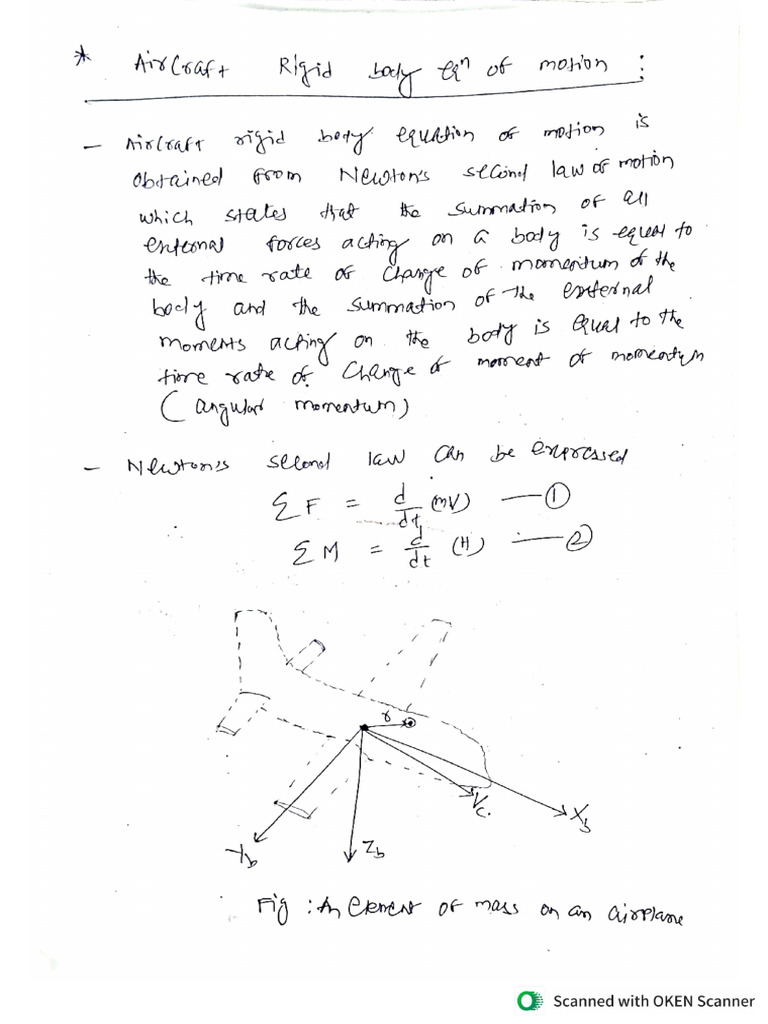 * Aircraft Rigid body eqn of motion :
- Aircraft rigid body equation of motion is
obtained from Newton's second law of motion
which states that the summation of all
external forces acting on a body is equal to
the time rate of change of momentum of the
body and the summation of the external
moments acting on the body is equal to the
time rate of change of moment of momentum
(angular momentum)
- Newton's second law can be expressed
ΣF = d/dt (mV) — ①
ΣM = d/dt (H) — ②
r
Vc.
Xb
Yb
Zb
Fig : An Element of mass on an airplane
Scanned with OKEN Scanner